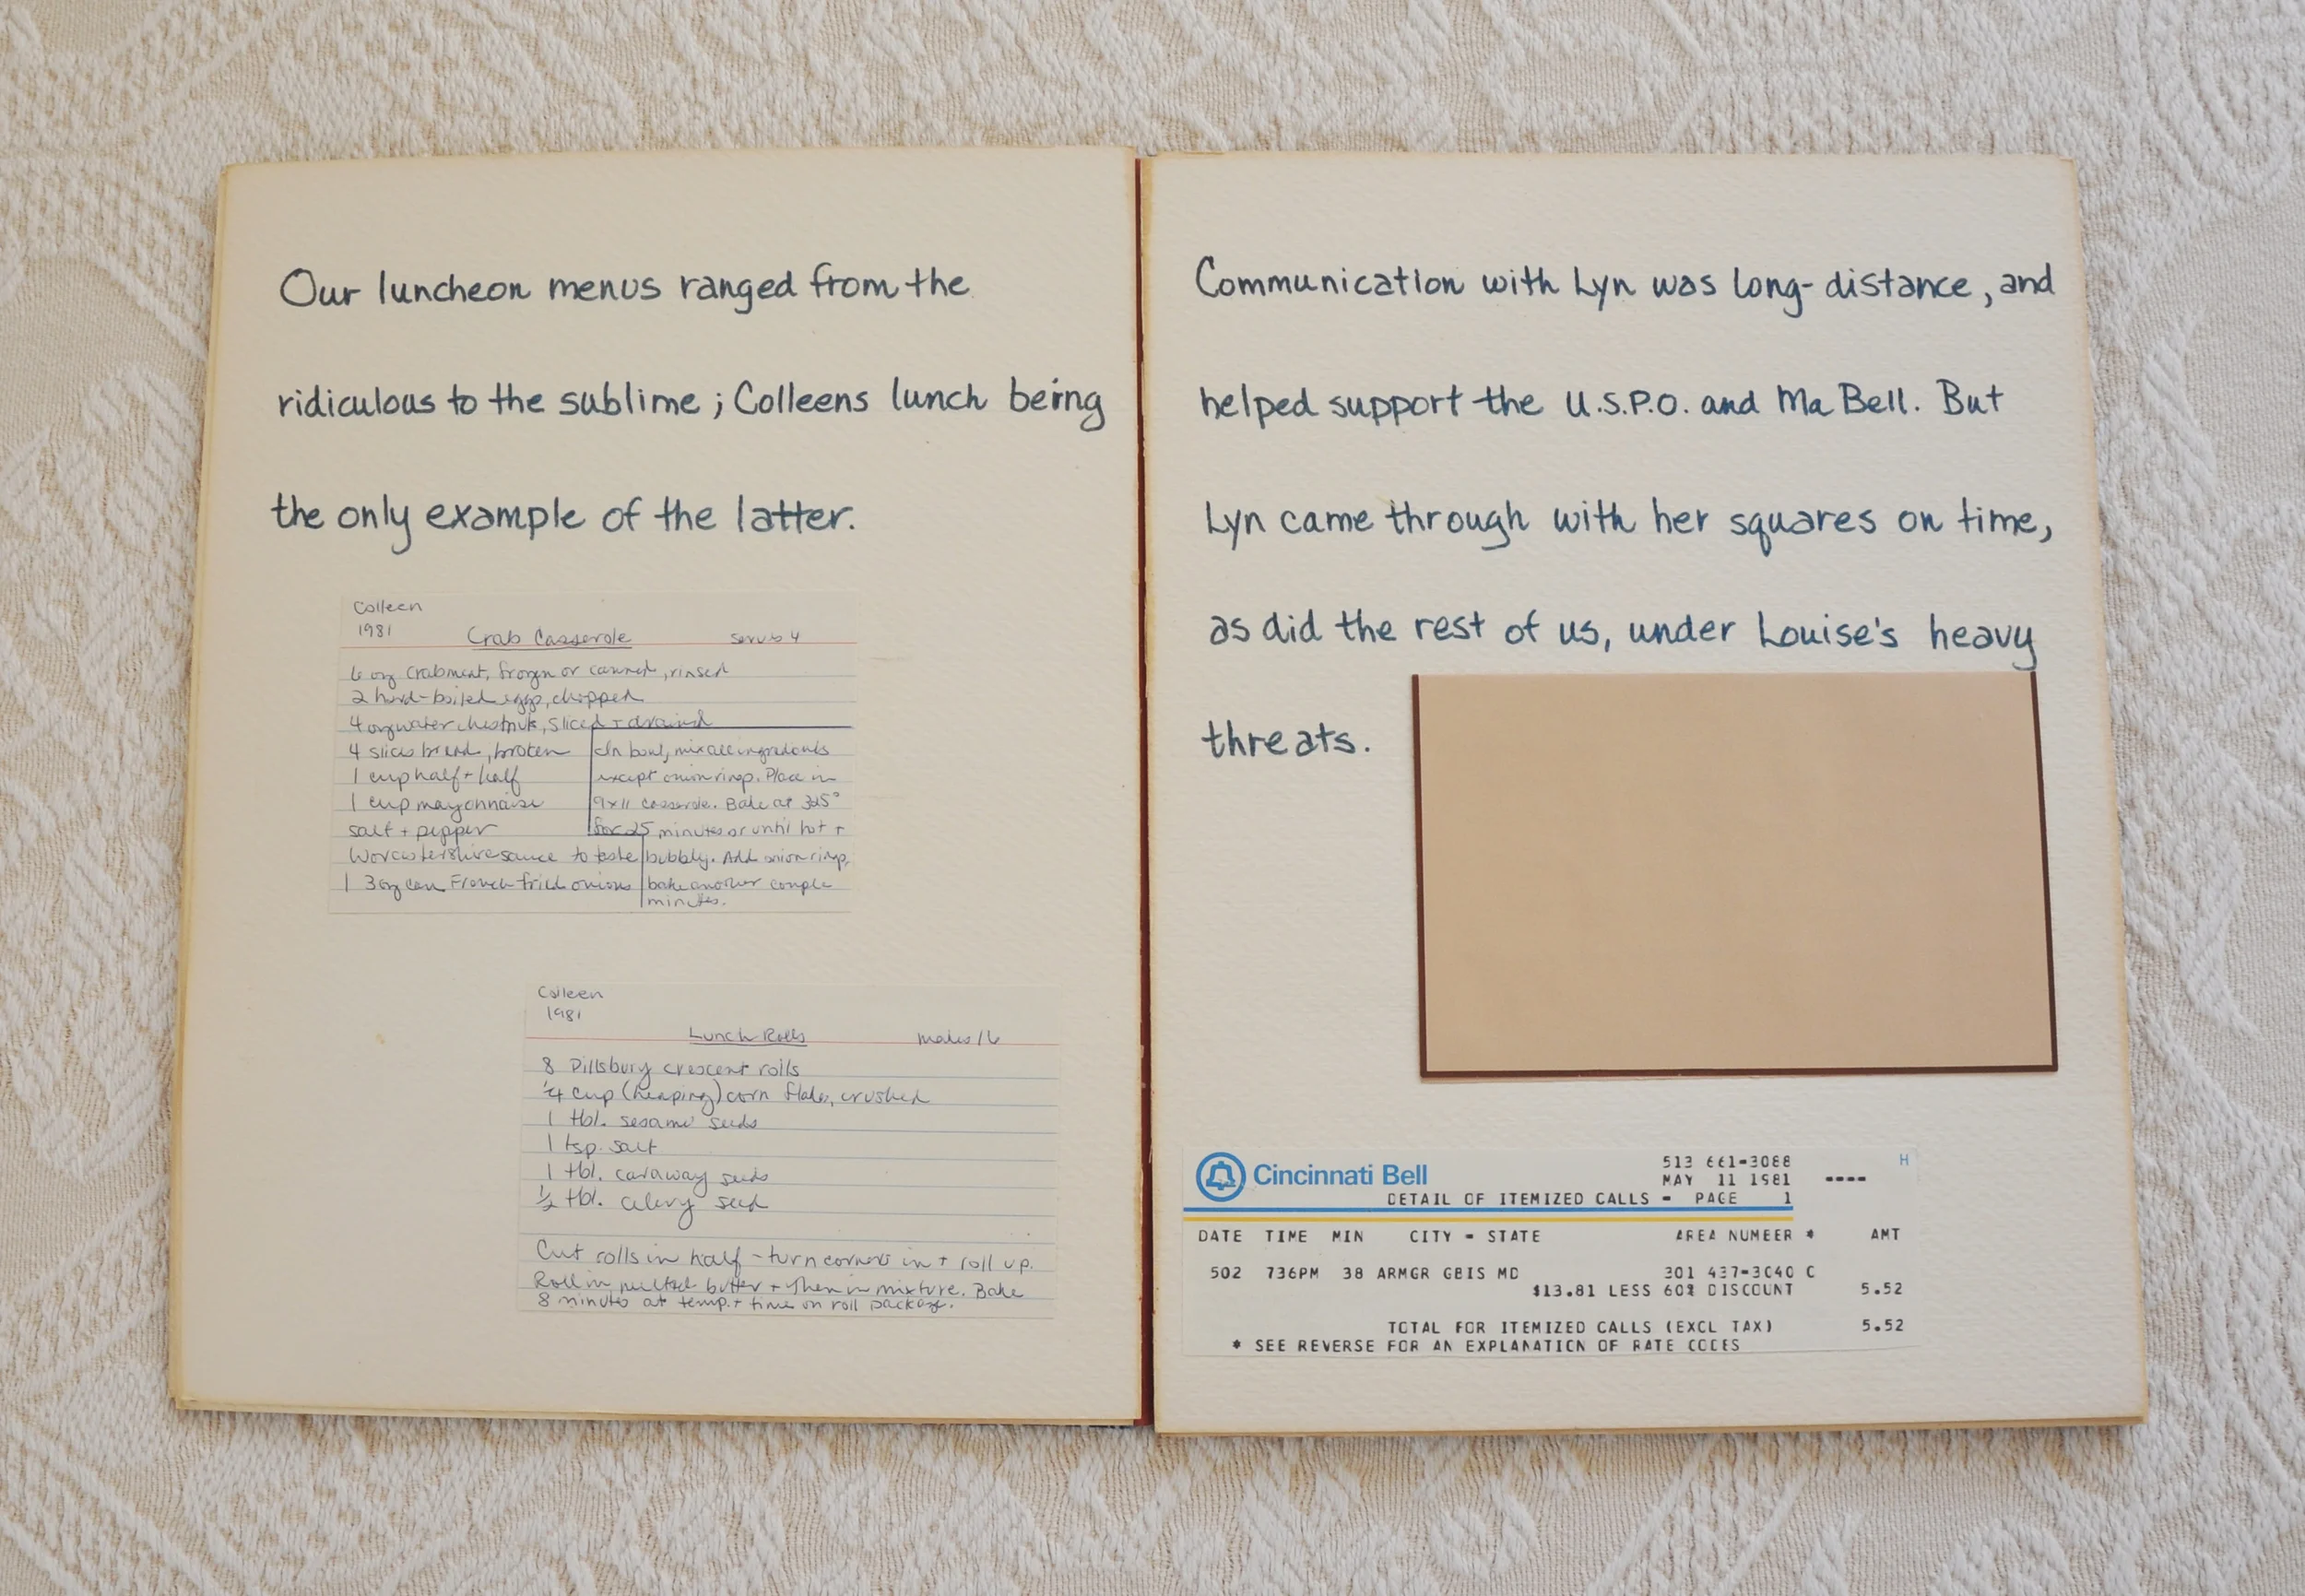 Our luncheon menus ranged from the
ridiculous to the sublime; Colleens lunch being
the only example of the latter.
Colleen
1981
Crab Casserole serves 4
6 oz crabmeat, frozen or canned, rinsed
2 hard-boiled eggs, chopped
4 oz water chestnuts, sliced + drained
4 slices bread, broken
1 cup half + half
1 cup mayonnaise
salt + pepper
Worcestershire sauce to taste
1 3 oz can French fried onions
In bowl, mix all ingredients
except onion rings. Place in
9x11 casserole. Bake at 325°
for 25 minutes or until hot +
bubbly. Add onion rings,
bake another couple
minutes.
Colleen
1981
Lunch Rolls makes 16
8 Pillsbury crescent rolls
1/4 cup (heaping) corn flakes, crushed
1 tbl. sesame seeds
1 tsp. salt
1 tbl. caraway seeds
1/2 tbl. celery seed
Cut rolls in half - turn corners in + roll up.
Roll in melted butter + then in mixture. Bake
8 minutes at temp. + time on roll package.
Communication with Lyn was long-distance, and
helped support the U.S.P.O. and Ma Bell. But
Lyn came through with her squares on time,
as did the rest of us, under Louise's heavy
threats.
Cincinnati Bell
513 661-3088 H
MAY 11 1981 ----
DETAIL OF ITEMIZED CALLS - PAGE 1
DATE TIME MIN CITY - STATE AREA NUMBER * AMT
502 736PM 38 ARMGR GBIS MD 301 437-3040 C
$13.81 LESS 60% DISCOUNT 5.52
TOTAL FOR ITEMIZED CALLS (EXCL TAX) 5.52
* SEE REVERSE FOR AN EXPLANATION OF RATE CODES